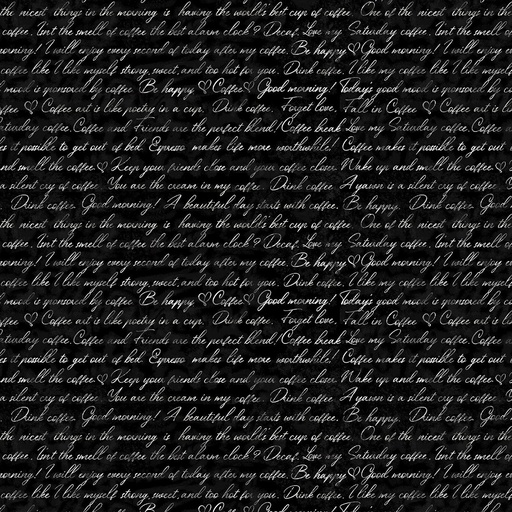 the nicest things in the morning is having the world's best cup of coffee. One of the nicest things in the
coffee. Isn't the smell of coffee the best alarm clock? Decaf. Love my Saturday coffee. Isn't the smell of
morning! I will enjoy every second of today after my coffee. Be happy ♡ Good morning! I will enjoy
coffee like I like myself strong, sweet, and too hot for you. Drink coffee. I like my coffee like I like myself
mood is sponsored by coffee. Be happy ♡ Coffee ♡ Good morning! Today's good mood is sponsored by coffee
♡ Coffee art is like poetry in a cup. Drink coffee. Forget love. Fall in Coffee ♡ Coffee art is
coffee. Coffee and Friends are the perfect blend! Coffee break Love my Saturday coffee. Coffee
it possible to get out of bed. Espresso makes life more worthwhile! Coffee makes it possible to get out
smell the coffee ♡ Keep your friends close and your coffee closer. Wake up and smell the coffee ♡
a silent cry of coffee. You are the cream in my coffee. Drink coffee. A yawn is a silent cry of coffee
Drink coffee. Good morning! A beautiful day starts with coffee. Be happy. Drink coffee. Good
the nicest things in the morning is having the world's best cup of coffee. One of the nicest things in the
coffee. Isn't the smell of coffee the best alarm clock? Decaf. Love my Saturday coffee. Isn't the smell of
morning! I will enjoy every second of today after my coffee. Be happy ♡ Good morning! I will enjoy
coffee like I like myself strong, sweet, and too hot for you. Drink coffee. I like my coffee like I like myself
mood is sponsored by coffee. Be happy ♡ Coffee ♡ Good morning! Today's good mood is sponsored by coffee
♡ Coffee art is like poetry in a cup. Drink coffee. Forget love. Fall in Coffee ♡ Coffee art is
coffee. Coffee and Friends are the perfect blend! Coffee break Love my Saturday coffee. Coffee
it possible to get out of bed. Espresso makes life more worthwhile! Coffee makes it possible to get out
smell the coffee ♡ Keep your friends close and your coffee closer. Wake up and smell the coffee ♡
a silent cry of coffee. You are the cream in my coffee. Drink coffee. A yawn is a silent cry of coffee
Drink coffee. Good morning! A beautiful day starts with coffee. Be happy. Drink coffee. Good
the nicest things in the morning is having the world's best cup of coffee. One of the nicest things in the
coffee. Isn't the smell of coffee the best alarm clock? Decaf. Love my Saturday coffee. Isn't the smell of
morning! I will enjoy every second of today after my coffee. Be happy ♡ Good morning! I will enjoy
coffee like I like myself strong, sweet, and too hot for you. Drink coffee. I like my coffee like I like myself